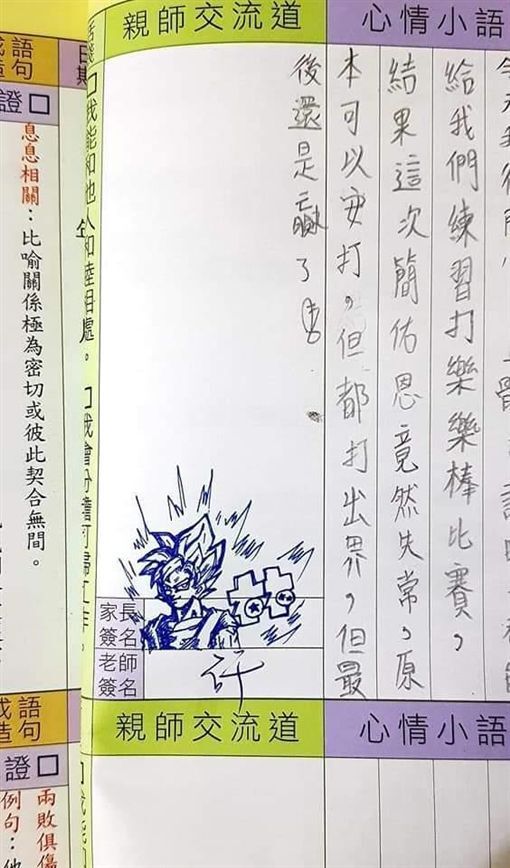 心情小語
給我們練習打樂樂棒比賽，
結果這次簡佑恩竟然失常，原
本可以安打，但都打出界，但最
後還是贏了
親師交流道
家長
簽名
老師
簽名
許
日期
□我能和他人和睦相處。
語
句
證□
息息相關：比喻關係極為密切或彼此契合無間。
心情小語
親師交流道
語
句
證□
兩敗俱傷
例句：他